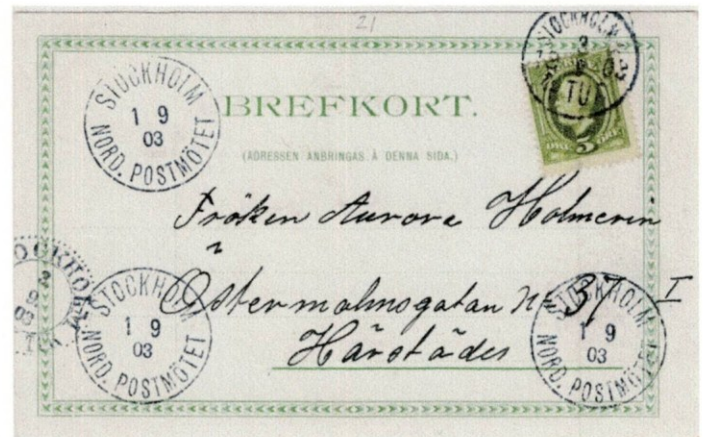 21
STOCKHOLM
1 9
03
NORD. POSTMÖTET
BREFKORT.
(ADRESSEN ANBRINGAS Å DENNA SIDA.)
STOCKHOLM
TUR
5 ÖRE
Fröken Aurora Holmerin
Östermalmsgatan No 37 I
Härstädes
STOCKHOLM
STOCKHOLM
1 9
03
NORD. POSTMÖTET
STOCKHOLM
1 9
03
NORD. POSTMÖTET